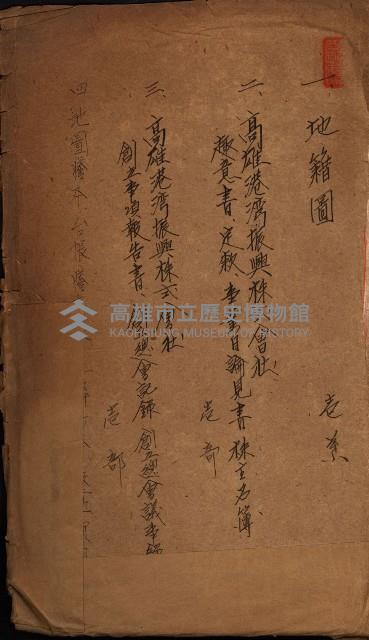 一、地籍圖 壱糸
二、高雄港湾振興株式會社
趣意書、定款、事業目論見書 株主名簿
壱部
三、高雄港湾振興株式會社
創立事項報告書 創立總會記録 創立總會議事録
壱部
四、地圖謄本 台帳謄
高雄市立歷史博物館
KAOHSIUNG MUSEUM OF HISTORY